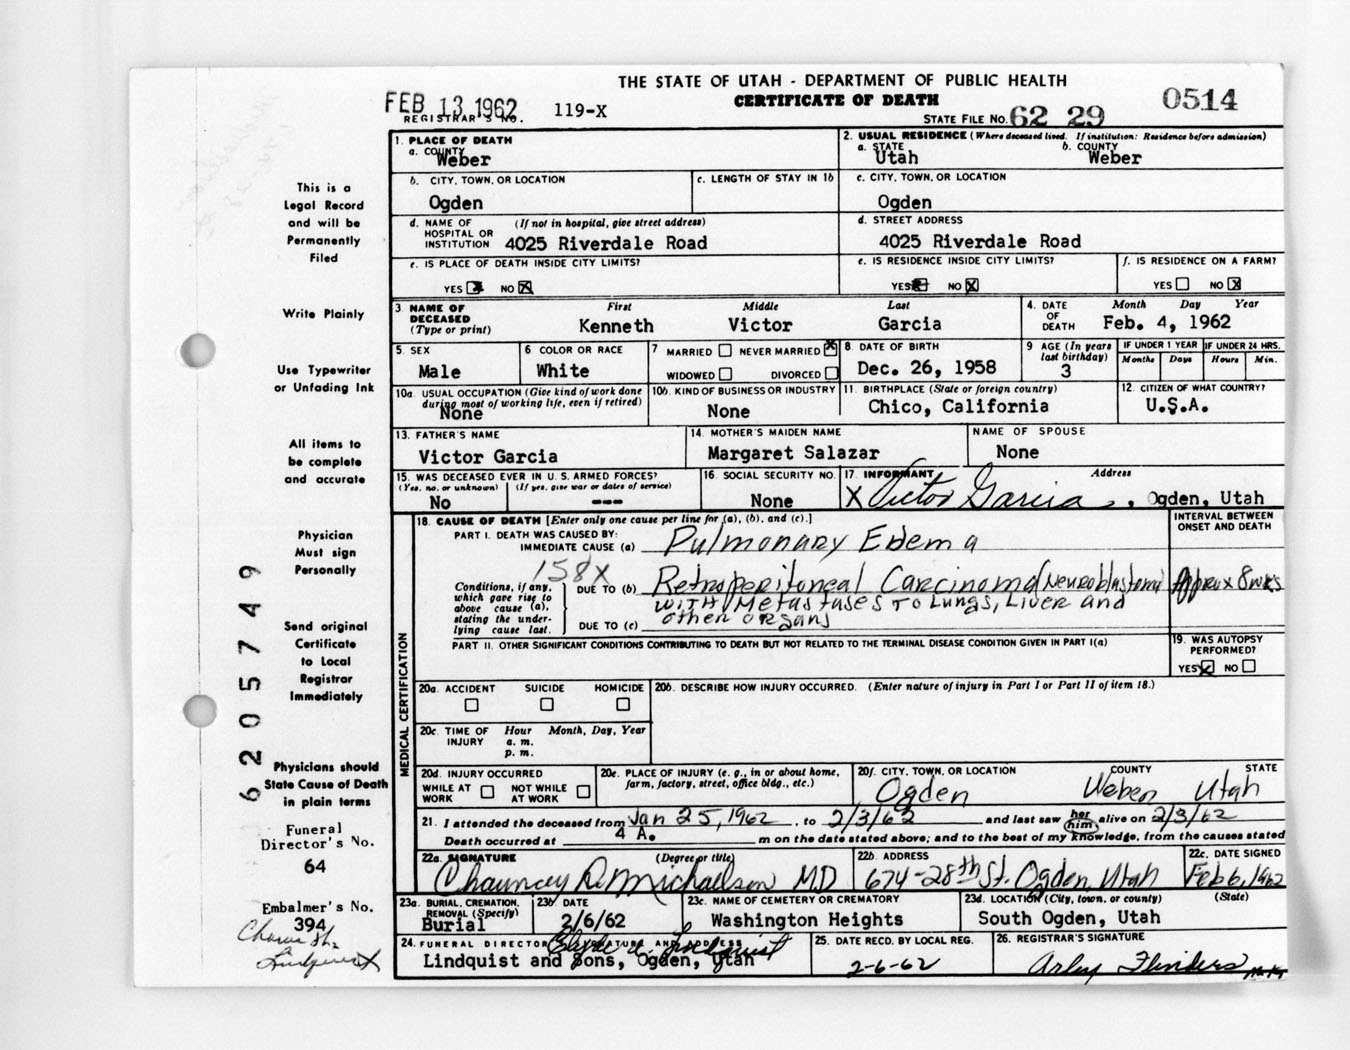 THE STATE OF UTAH - DEPARTMENT OF PUBLIC HEALTH
CERTIFICATE OF DEATH
FEB 13 1962
REGISTRAR'S NO. 119-X
STATE FILE NO. 62 29 0514
This is a
Legal Record
and will be
Permanently
Filed
Write Plainly
Use Typewriter
or Unfading Ink
All items to
be complete
and accurate
Physician
Must sign
Personally
Send original
Certificate
to Local
Registrar
Immediately
Physicians should
State Cause of Death
in plain terms
Funeral
Director's No.
64
Embalmer's No.
394
6205749
1. PLACE OF DEATH
a. COUNTY
Weber
2. USUAL RESIDENCE (Where deceased lived. If institution: Residence before admission)
a. STATE b. COUNTY
Utah Weber
b. CITY, TOWN, OR LOCATION
Ogden
c. LENGTH OF STAY IN 1b
c. CITY, TOWN, OR LOCATION
Ogden
d. NAME OF HOSPITAL OR INSTITUTION (If not in hospital, give street address)
4025 Riverdale Road
d. STREET ADDRESS
4025 Riverdale Road
e. IS PLACE OF DEATH INSIDE CITY LIMITS?
YES NO X
e. IS RESIDENCE INSIDE CITY LIMITS?
YES NO X
f. IS RESIDENCE ON A FARM?
YES NO X
3. NAME OF DECEASED (Type or print) First Middle Last
Kenneth Victor Garcia
4. DATE OF DEATH Month Day Year
Feb. 4, 1962
5. SEX
Male
6 COLOR OR RACE
White
7 MARRIED NEVER MARRIED X
WIDOWED DIVORCED
8 DATE OF BIRTH
Dec. 26, 1958
9 AGE (In years last birthday)
3
IF UNDER 1 YEAR IF UNDER 24 HRS.
Months Days Hours Min.
10a. USUAL OCCUPATION (Give kind of work done during most of working life, even if retired)
None
10b. KIND OF BUSINESS OR INDUSTRY
None
11. BIRTHPLACE (State or foreign country)
Chico, California
12. CITIZEN OF WHAT COUNTRY?
U.S.A.
13. FATHER'S NAME
Victor Garcia
14. MOTHER'S MAIDEN NAME
Margaret Salazar
NAME OF SPOUSE
None
15. WAS DECEASED EVER IN U. S. ARMED FORCES?
(Yes, no, or unknown) (If yes, give war or dates of service)
No ---
16. SOCIAL SECURITY NO.
None
17. INFORMANT Address
X Victor Garcia, Ogden, Utah
18. CAUSE OF DEATH [Enter only one cause per line for (a), (b), and (c).]
INTERVAL BETWEEN ONSET AND DEATH
PART I. DEATH WAS CAUSED BY:
IMMEDIATE CAUSE (a) Pulmonary Edema
158X
Conditions, if any, which gave rise to above cause (a), stating the underlying cause last.
DUE TO (b) Retroperitoneal Carcinoma (Neuroblastoma) Approx 8 wks
with Metastases to Lungs, Liver and
other organs
DUE TO (c)
PART II. OTHER SIGNIFICANT CONDITIONS CONTRIBUTING TO DEATH BUT NOT RELATED TO THE TERMINAL DISEASE CONDITION GIVEN IN PART I(a)
19. WAS AUTOPSY PERFORMED?
YES X NO
MEDICAL CERTIFICATION
20a. ACCIDENT SUICIDE HOMICIDE
20b. DESCRIBE HOW INJURY OCCURRED. (Enter nature of injury in Part I or Part II of item 18.)
20c. TIME OF INJURY Hour Month, Day, Year
a. m.
p. m.
20d. INJURY OCCURRED
WHILE AT WORK NOT WHILE AT WORK
20e. PLACE OF INJURY (e. g., in or about home, farm, factory, street, office bldg., etc.)
20f. CITY, TOWN, OR LOCATION COUNTY STATE
Ogden Weber Utah
21. I attended the deceased from Jan 25, 1962, to 2/3/62 and last saw her him alive on 2/3/62
Death occurred at 4 A. m on the date stated above; and to the best of my knowledge, from the causes stated
22a. SIGNATURE (Degree or title)
Chauncey D. Michaelson MD
22b. ADDRESS
674-28th St. Ogden, Utah
22c. DATE SIGNED
Feb 6, 1962
23a. BURIAL, CREMATION, REMOVAL (Specify)
Burial
23b. DATE
2/6/62
23c. NAME OF CEMETERY OR CREMATORY
Washington Heights
23d. LOCATION (City, town, or county) (State)
South Ogden, Utah
24. FUNERAL DIRECTOR SIGNATURE AND ADDRESS
Lindquist and Sons, Ogden, Utah
25. DATE RECD. BY LOCAL REG.
2-6-62
26. REGISTRAR'S SIGNATURE
Arley Flinders